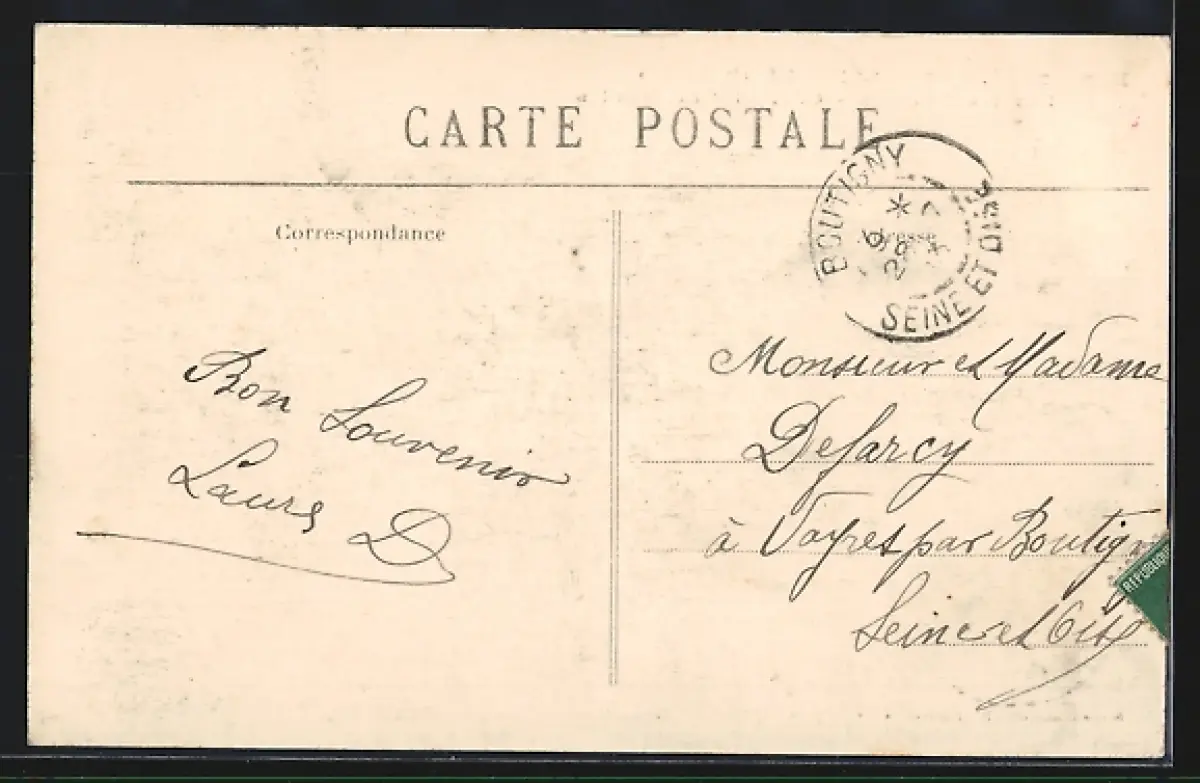 CARTE POSTALE
Correspondance
Adresse
BOUTIGNY
SEINE ET OISE
Bon Souvenir
Laure D
Monsieur et Madame
Defarcy
à Vayres par Boutigny
Seine et Oise
REPUBLIQUE